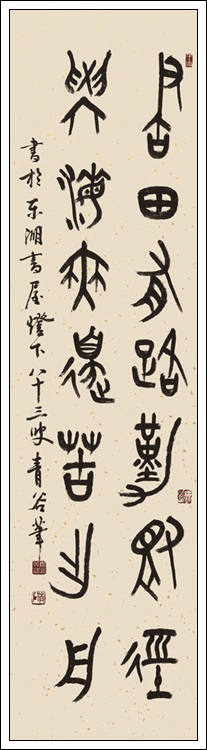 田有路勤為徑
學海無邊苦作舟
書於东湖書屋燈下八十三叟青谷筆